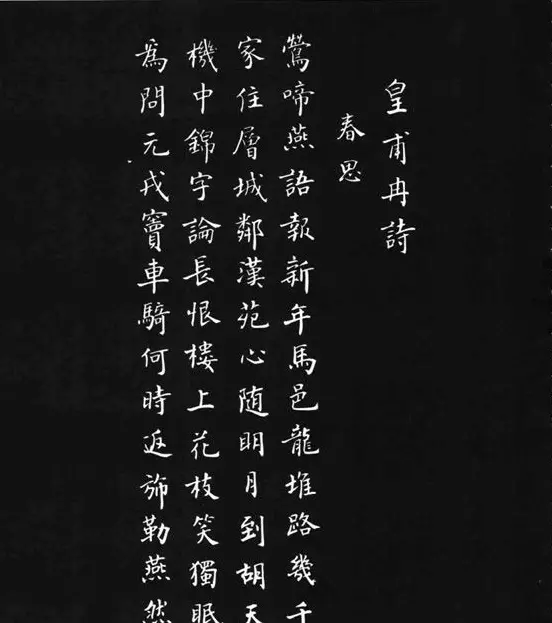 皇甫冉詩
春思
鶯啼燕語報新年馬邑龍堆路幾千
家住層城鄰漢苑心随明月到胡天
機中錦字論長恨樓上花枝笑獨眠
為問元戎竇車騎何時返斾勒燕然